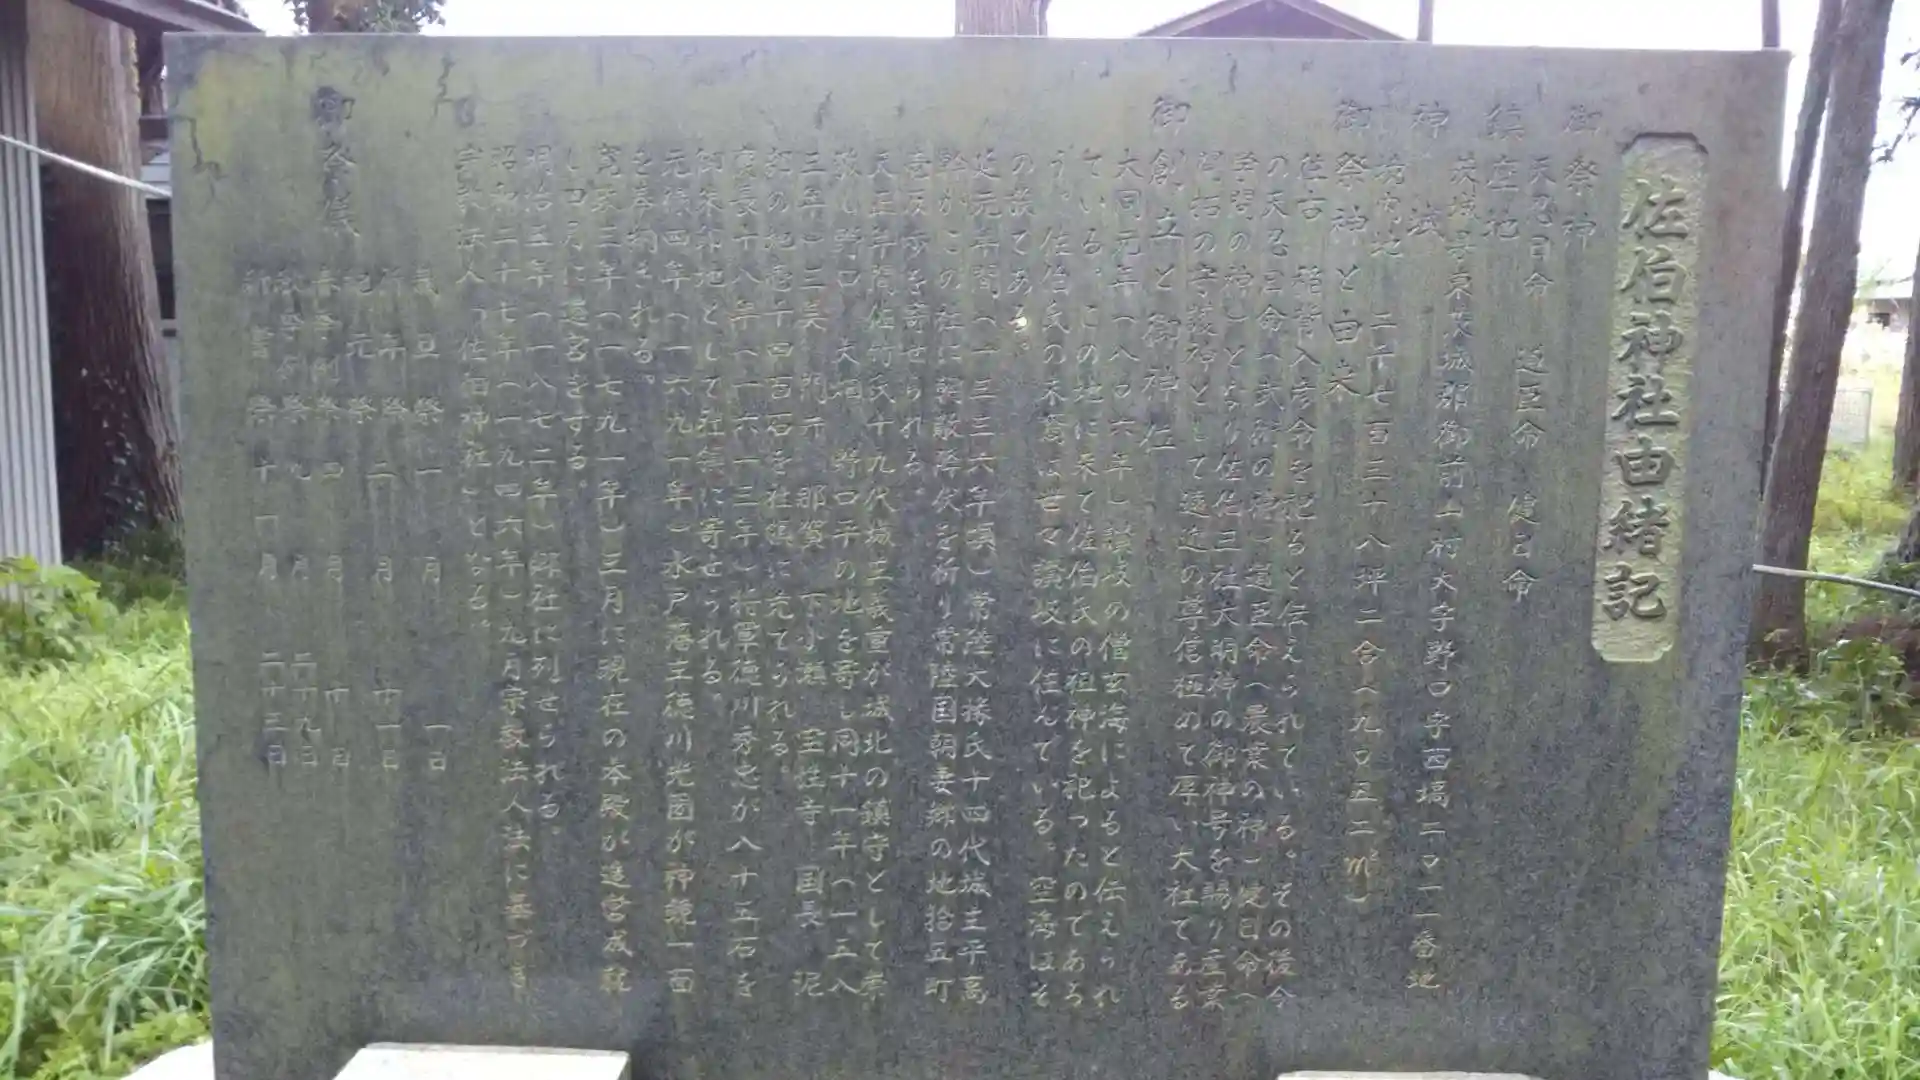 佐伯神社由緒記
御祭神
天忍日命 道臣命 健日命
鎮座地
茨城県東茨城郡御前山村大字野口字西塙二〇一一番地
神域
境内地 二千七百三十八坪二合(九〇五二㎡)
御祭神と由来
往古 稲背入彦命を祀ると伝えられている。その後今
の天忍日命(武術の神)道臣命(農業の神)健日命(
学問の神)となり佐伯三社大明神の御神号を賜り産業
の守護神として遠近の尊信極めて厚い大社である
御創立と御神位
大同元年(八〇六年)讃岐の僧玄海によると伝えられ
ている。この地に来て佐伯氏の祖神を祀ったのであろ
う。佐伯氏の末裔は世々讃岐に住んでいる。空海はそ
の裔である。
延元年間(一三三六年頃)常陸大掾氏十四代城主平高
幹がこの社に朝敵降伏を祈り常陸国朝妻郷の地拾五町
を寄せられる。
天正年間佐竹氏十九代城主義重が城北の鎮守として崇
敬し野口、大畑、野口平の地を寄し同十一年(一五八
三年)三美、門井、那賀、下小瀬、室性寺、国長、泥
の地壱千四百石を社領に充てられる。
慶長十八年(一六一三年)将軍徳川秀忠が八十五石を
御朱印地として社領に寄せられる。
元禄四年(一六九一年)水戸藩主徳川光圀が神鏡一面
を奉納される。
寛政三年(一七九一年)三月に現在の本殿が造営成就
し四月に遷宮をする。
明治五年(一八七二年)郷社に列せられる。
昭和二十七年(一九四六年)九月宗教法人法に基づき
宗教法人「佐伯神社」となる。
御祭儀
歳旦祭 一月 一日
祈年祭 二月 十一日
紀元祭
春季例祭 四月 十日
秋季例祭 九月 二十九日
新嘗祭 十一月 二十三日